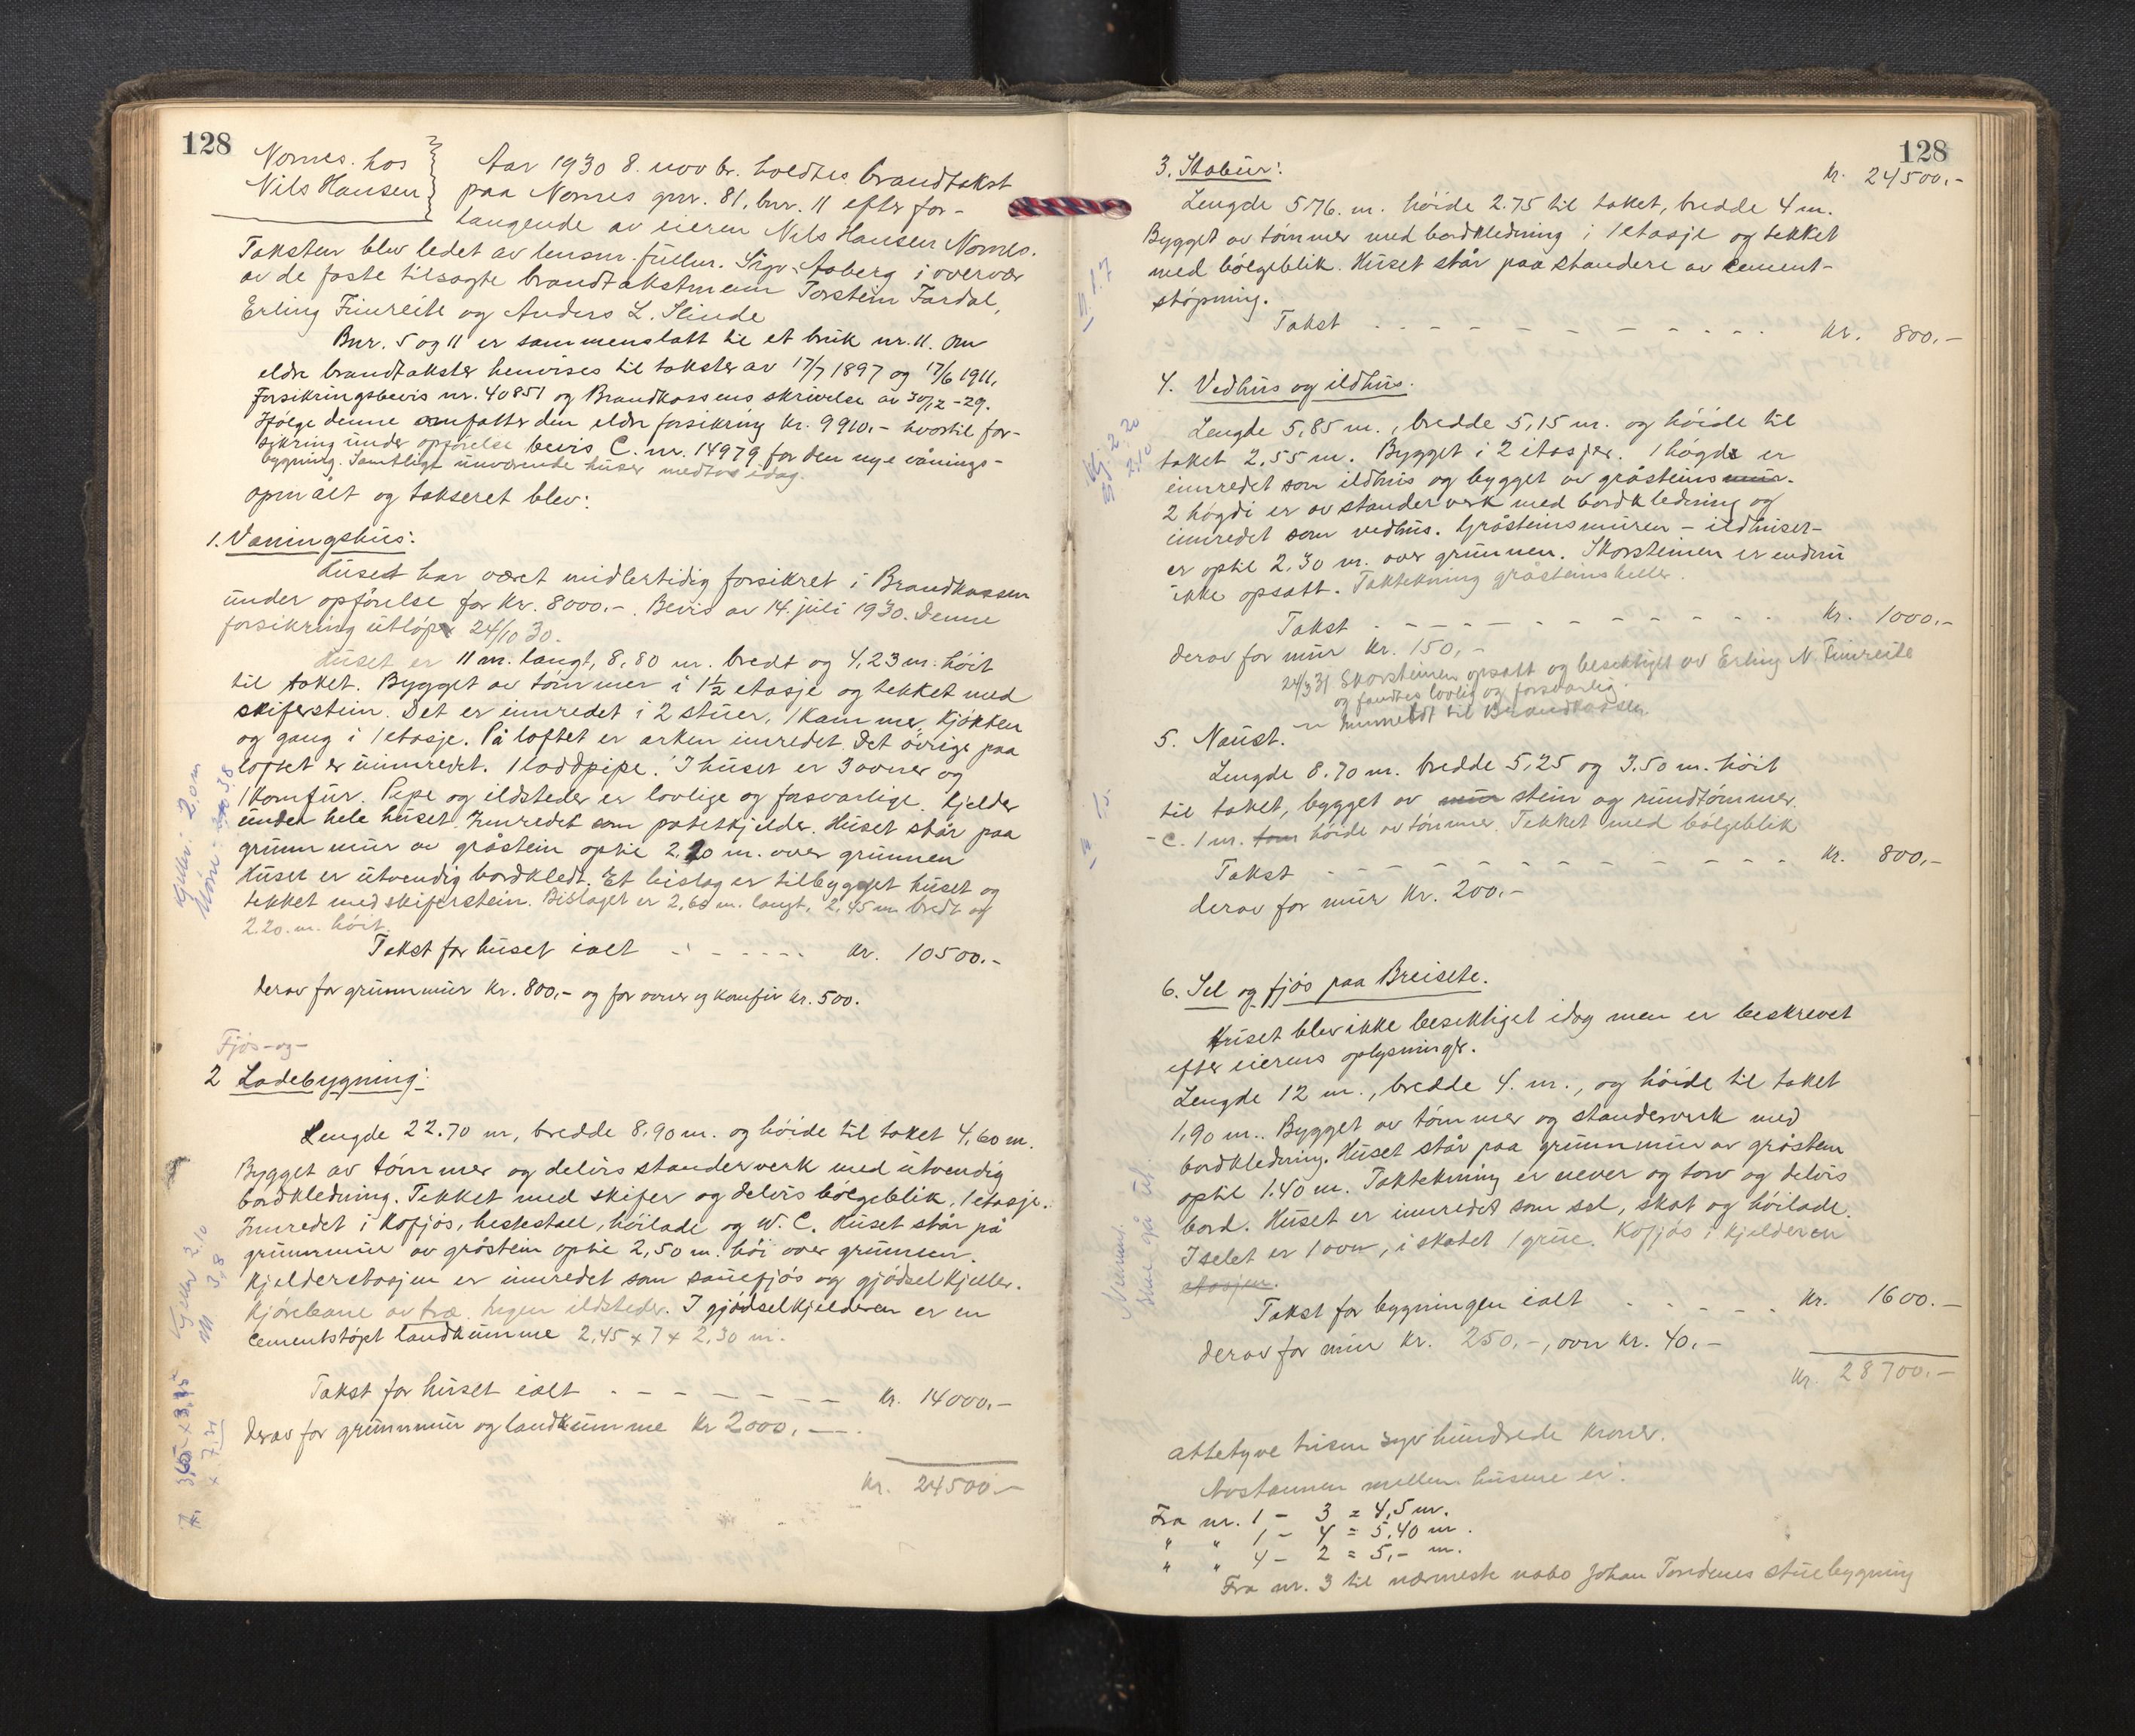 128
Nornes. hos
Nils Hansen
Aar 1930 8. novbr. holdtes brandtakst
paa Nornes gnr. 81. bnr. 11 efter for-
langende av eieren Nils Hansen Nornes.
Taksten blev ledet av lensm. fullm. Sigv. Aaberg i overvær
av de faste tilsagte brandtakstmenn Torstein Fardal,
Erling Fimreite og Anders L. Slinde
Bnr. 5 og 11 er sammenslått til et bruk nr. 11. Om
eldre brandtakster henvises til takster av 17/7 1897 og 17/6 1911,
Forsikringsbevis nr. 40851 og Brandkassens skrivelse av 30/12-29.
Ifølge denne omfatter den eldre forsikring kr. 9910,- hvortil for-
sikring under opførelse bevis C. nr. 14979 for den nye vånings-
bygning. Samtlige nuværende huser medtas idag.
Opmålt og taksert blev:
1. Vaningshus:
Huset har været midlertidig forsikret i Brandkassen
under opførelse for kr. 8000.-. Bevis av 14. juli 1930. Denne
forsikring utløp 24/10 30.
Huset er 11 m. langt, 8,80 m. bredt og 4,23 m. høit
til taket. Bygget av tømmer i 1½ etasje og tekket med
skiferstein. Det er innredet i 2 stuer, 1 kammer, kjøkken
og gang i 1 etasje. På loftet er arken innredet. Det øvrige paa
loftet er uinnredet. 1 loddpipe. I huset er 3 ovner og
1 komfur. Pipe og ildsteder er lovlige og forsvarlige. Kjelder
under hele huset. Innredet som potetkjelder. Huset står paa
grunnmur av gråstein optil 2,20 m. over grunnen
Huset er utvendig bordkledt. Et bislag er tilbygget huset og
tekket med skiferstein. Bislaget er 2,60 m. langt, 2,45 m bredt og
2.20. m. høit.
Takst for huset ialt - - - - - kr. 10500.-
derav for grunnmur kr. 800,- og for ovner og komfur kr. 500.
Kjeller: 2.0 m
3.8
Fjøs-og-
2 Ladebygning:
Lengde 22.70 m, bredde 8,90 m. og høide til taket 4,60 m.
Bygget av tømmer og delvis standerverk med utvendig
bordkledning. Tekket med skifer og delvis bølgeblik. 1 etasje.
Innredet i kofjøs, hestestall, høilade og W.C. Huset står på
grunnmur av gråstein optil 2,50 m. høi over grunnen.
Kjelderetasjen er innredet som sauefjøs og gjødselkjeller.
Kjørebane av træ. Ingen ildsteder. I gjødselkjelderen er en
cementstøpt landkumme 2,45 x 7 x 2,30 m.
Kjeller 2.10
M 3,8
Takst for huset ialt - - - - - - - kr. 14000,-
derav for grunnmur og landkumme kr 2000,-.
kr. 24500.-
128
kr. 24500,-
3. Stabur:
Lengde 5.76. m. høide 2.75 til taket, bredde 4 m.
Bygget av tømmer med bordkledning i 1 etasje og tekket
med bølgeblik. Huset står paa standere av cement-
støpning.
Takst - - - - - - - - - kr. 800.-
4. Vedhus og ildhus.
Lengde 5,85 m., bredde 5,15 m. og høide til
taket 2,55 m. Bygget i 2 etasjer. 1 høgde er
innredet som ildhus og bygget av gråsteinsmur.
2 høgdi er av standerverk med bordkledning og
innredet som vedhus. Gråsteinsmuren - ildhuset-
er optil 2,30 m. over grunnen. Skorsteinen er endnu
ikke opsatt. Taktekning gråsteinsheller.
Takst - - - - - - - - - kr. 1000.-
derav for mur kr. 150,-
24/3 31 Skorsteinen opsatt og besiktiget av Erling N. Fimreite
og fandtes lovlig og forsvarlig.
- Innmeldt til Brandkassen
5. Naust.
Lengde 8.70 m. bredde 5,25 og 3.50 m. høit
til taket, bygget av mur stein og rundtømmer.
- C. 1 m. høide av tømmer. Tekket med bølgeblik
Takst - - - - - - - - - kr. 800,-
derav for mur kr. 200.-
6. Sel og fjøs paa Breisete.
Huset blev ikke besiktiget idag men er beskrevet
efter eierens oplysninger.
Lengde 12 m., bredde 4. m., og høide til taket
1,90 m.. Bygget av tømmer og standerverk med
bordkledning. Huset står paa grunnmur av gråstein
optil 1.40 m. Taktekning er never og torv og delvis
bord. Huset er innredet som sel, skot og høilade.
I selet er 1 ovn, i skotet 1 grue. Kofjøs i kjelderen
etasjen.
Takst for bygningen ialt - - - - - kr. 1600.-
derav for mur kr. 250,-, ovn kr. 40.-
kr. 28700.-
åttetyve tusen syv hundrede kroner.
Avstannen mellem husene er:
Fra nr. 1 - 3 = 4,5 m.
" " 1 - 4 = 5,40 m.
" " 4 - 2 = 5,- m.
Fra nr. 3 til nærmeste nabo Johan Tondenes stuebygning